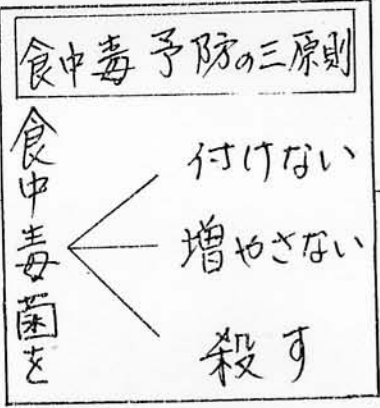 食中毒予防の三原則
食中毒菌を
付けない
増やさない
殺す